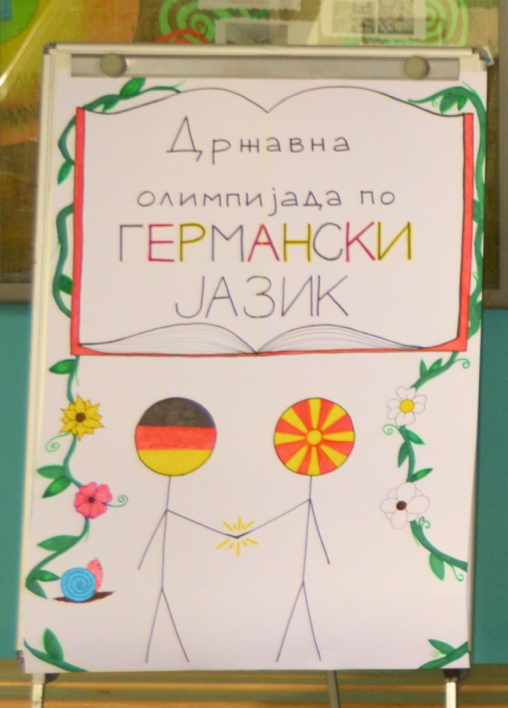 Државна
олимпијада по
ГЕРМАНСКИ
ЈАЗИК